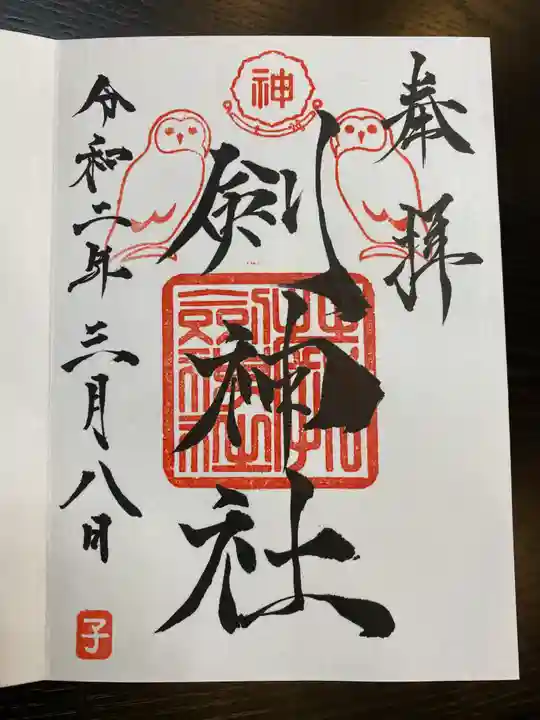 奉拝
神
剣神社
令和二年三月八日
子